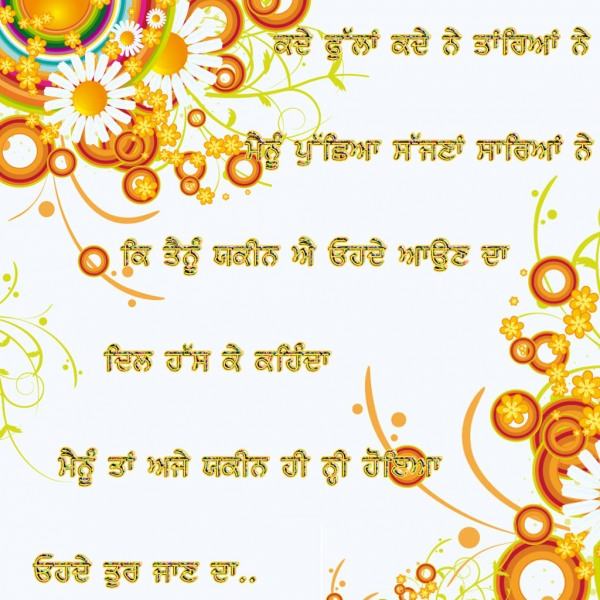 ਕਦੇ ਫੁੱਲਾਂ ਕਦੇ ਨੇ ਤਾਂਰਿਆਂ ਨੇ
ਮੈਨੂੰ ਪੁੱਛਿਆ ਸੱਜਣਾਂ ਸਾਰਿਆਂ ਨੇ
ਕਿ ਤੈਨੂੰ ਯਕੀਨ ਐ ਓਹਦੇ ਆਉਣ ਦਾ
ਦਿਲ ਹੱਸ ਕੇ ਕਹਿੰਦਾ
ਮੈਨੂੰ ਤਾਂ ਅਜੇ ਯਕੀਨ ਹੀ ਨ੍ਹੀ ਹੋਇਆ
ਓਹਦੇ ਤੁਰ ਜਾਣ ਦਾ..